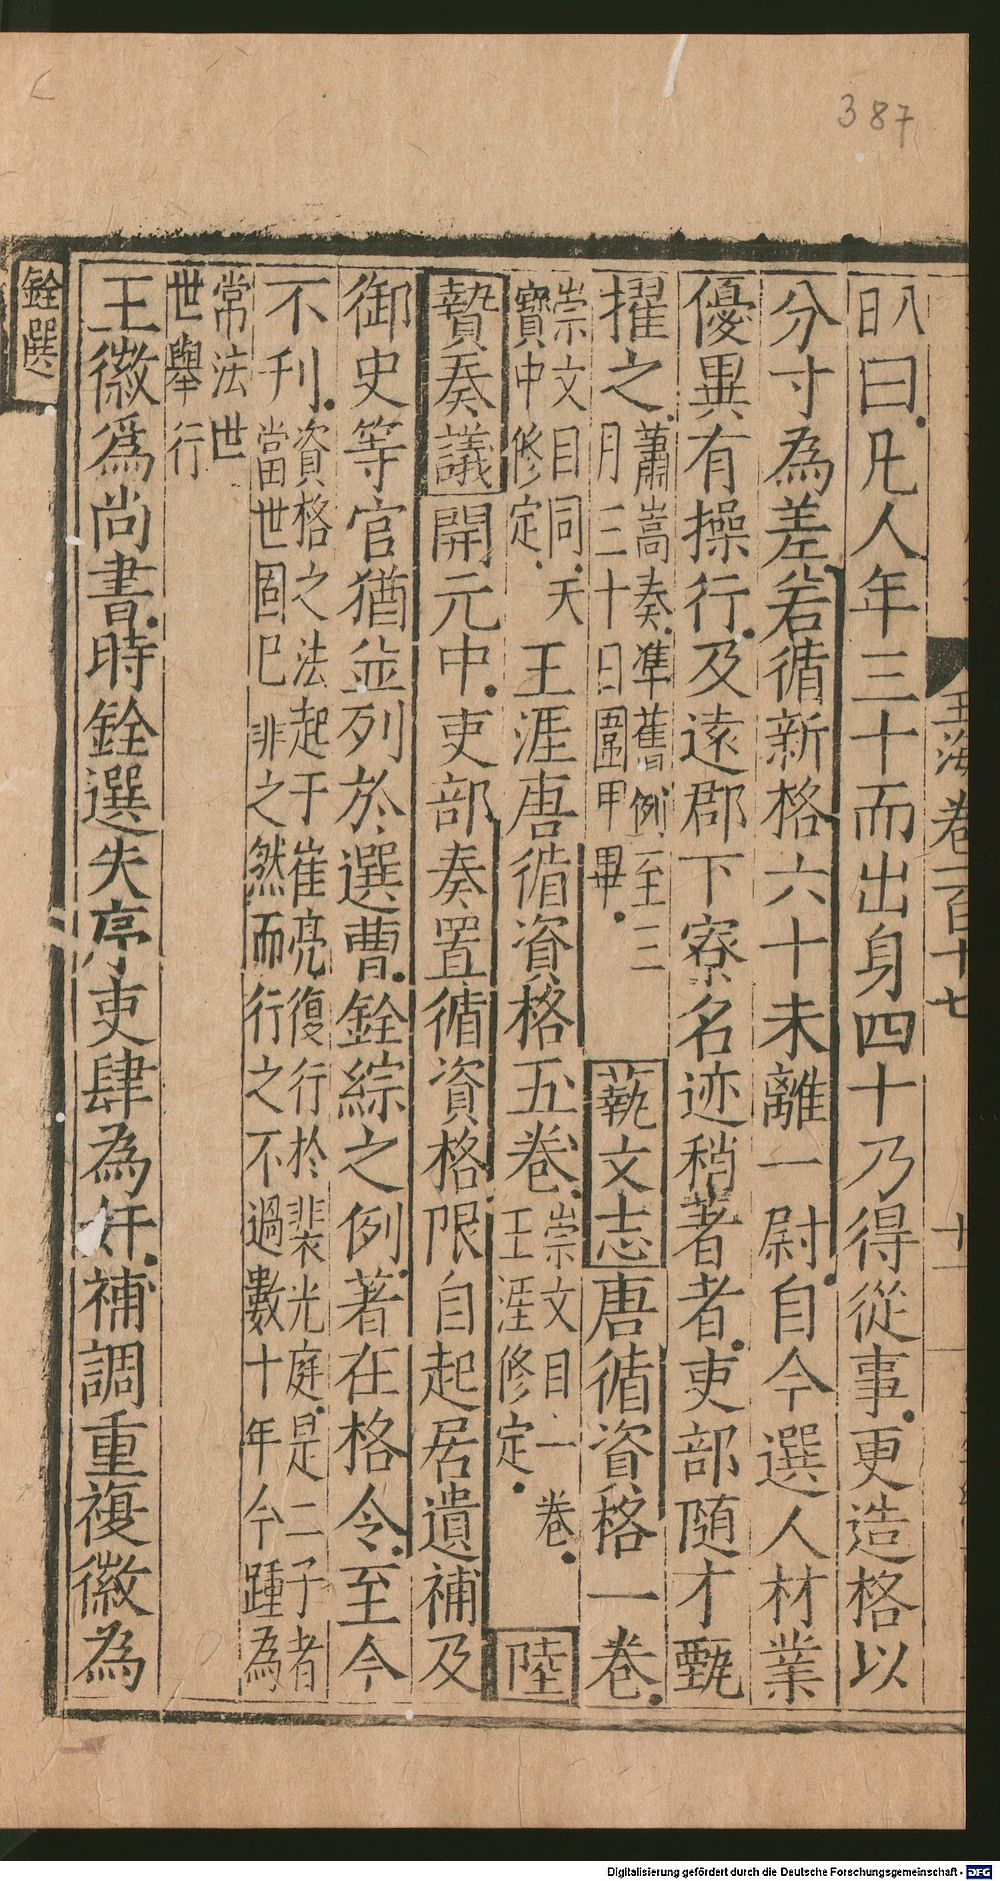 387
玉海卷一百十七
十一
八日曰凡人年三十而出身四十乃得從事更造格以
分寸為差若循新格六十未離一尉自今選人材業
優異有操行及遠郡下寮名迹稍著者吏部隨才甄
擢之蕭嵩奏準舊例至三月三十日團甲畢藝文志唐循資格一卷
崇文目同天寶中修定王涯唐循資格五卷崇文目一卷王涯修定陸
贄奏議開元中吏部奏置循資格限自起居遺補及
御史等官猶並列於選曹銓綜之例著在格令至今
不刋資格之法起于崔亮復行於裴光庭是二子者當世固已非之然而行之不過數十年今踵為
常法世世舉行
王徽爲尚書時銓選失序吏肆為奸補調重複徽為
銓選
Digitalisierung gefördert durch die Deutsche Forschungsgemeinschaft - DFG